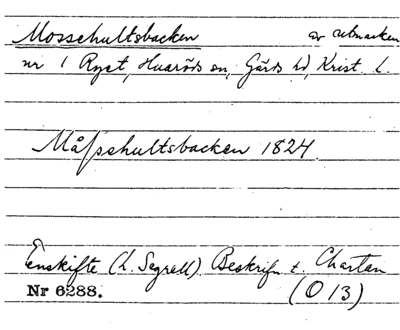 Mosschultsbacken av utmarken
nr 1 Ryet, Huaröds sn, Gärds hd, Krist. l.
Måsschultsbacken 1824.
Enskifte (L. Segrell) Beskrifn t. Chartan
Nr 6288. (O 13)